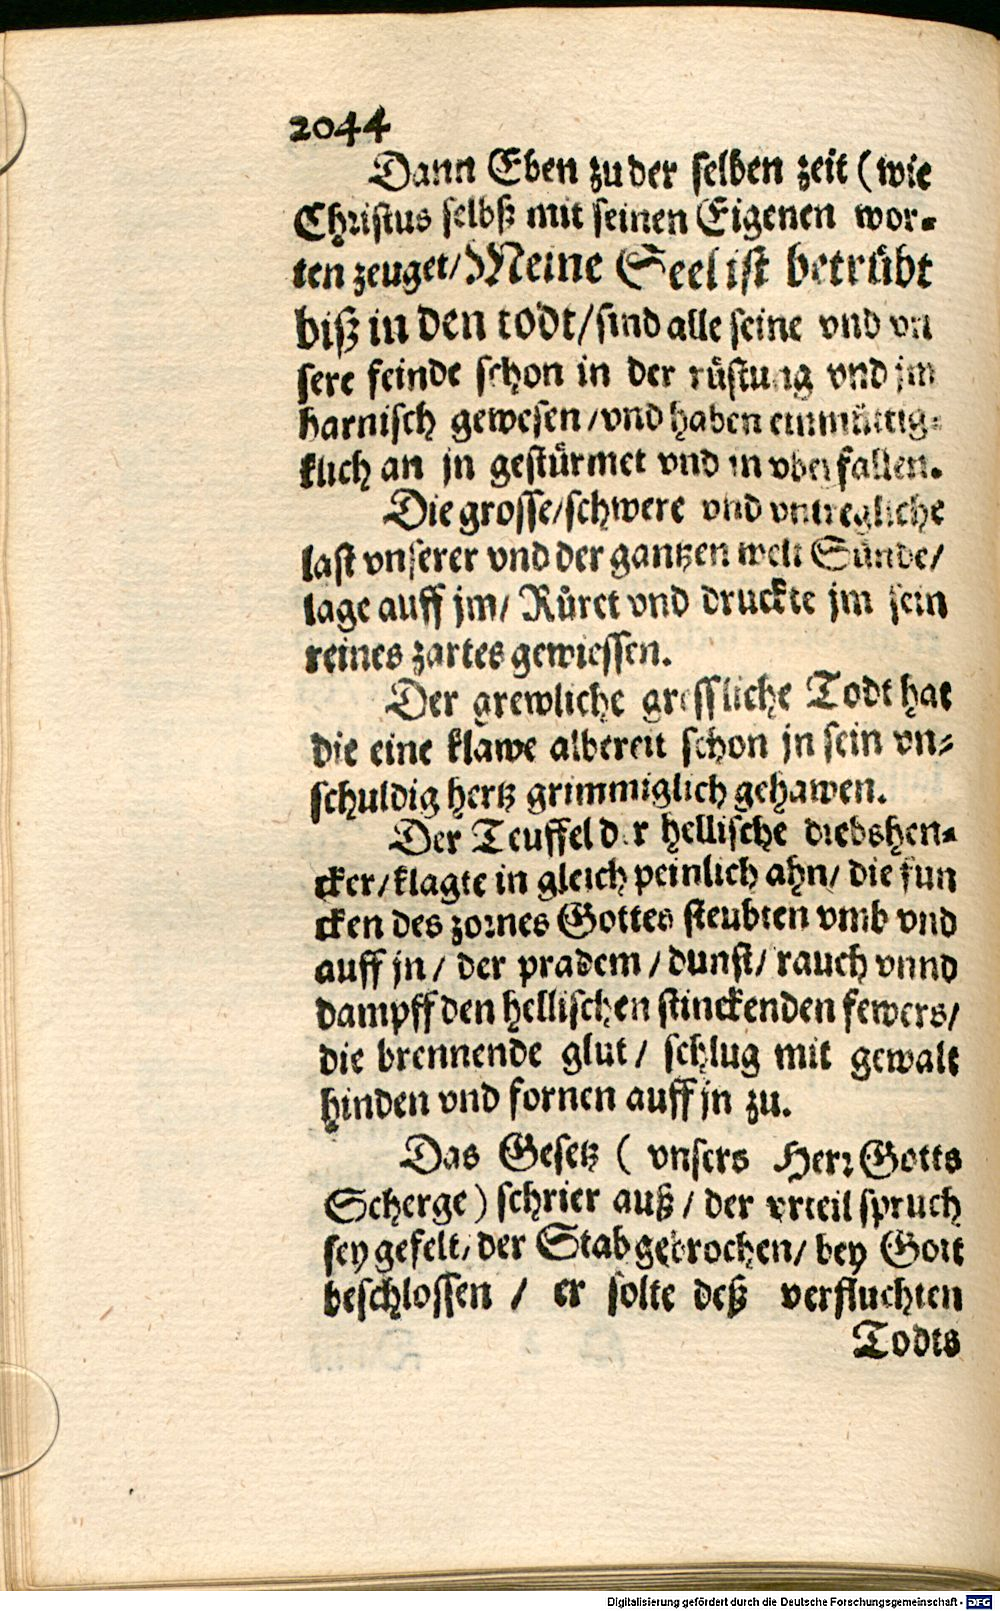 2044
Dann Eben zu der selben zeit (wie
Christus selbß mit seinen Eigenen wor-
ten zeuget/ Meine Seel ist betrübt
biß in den todt/ sind alle seine vnd vn
sere feinde schon in der rüstung vnd jm
harnisch gewesen/ vnd haben einmüttig-
klich an jn gestürmet vnd in vberfallen.
Die grosse/ schwere vnd vntregliche
last vnserer vnd der gantzen welt Sünde/
lage auff jm/ Rüret vnd druckte jm sein
reines zartes gewiessen.
Der grewliche gressliche Todt hat
die eine klawe albereit schon jn sein vn-
schuldig hertz grimmiglich gehawen.
Der Teuffel der hellische diebshen-
cker/ klagte in gleich peinlich ahn/ die fun
cken des zornes Gottes steubten vmb vnd
auff jn/ der pradem/ dunst/ rauch vnnd
dampff den hellischen stinckenden fewers/
die brennende glut/ schlug mit gewalt
hinden vnd fornen auff jn zu.
Das Gesetz ( vnsers Herr Gotts
Scherge) schrier auß/ der vrteil spruch
sey gefelt/ der Stab gebrochen/ bey Gott
beschlossen / er solte deß verfluchten
Todts
Digitalisierung gefördert durch die Deutsche Forschungsgemeinschaft - DFG